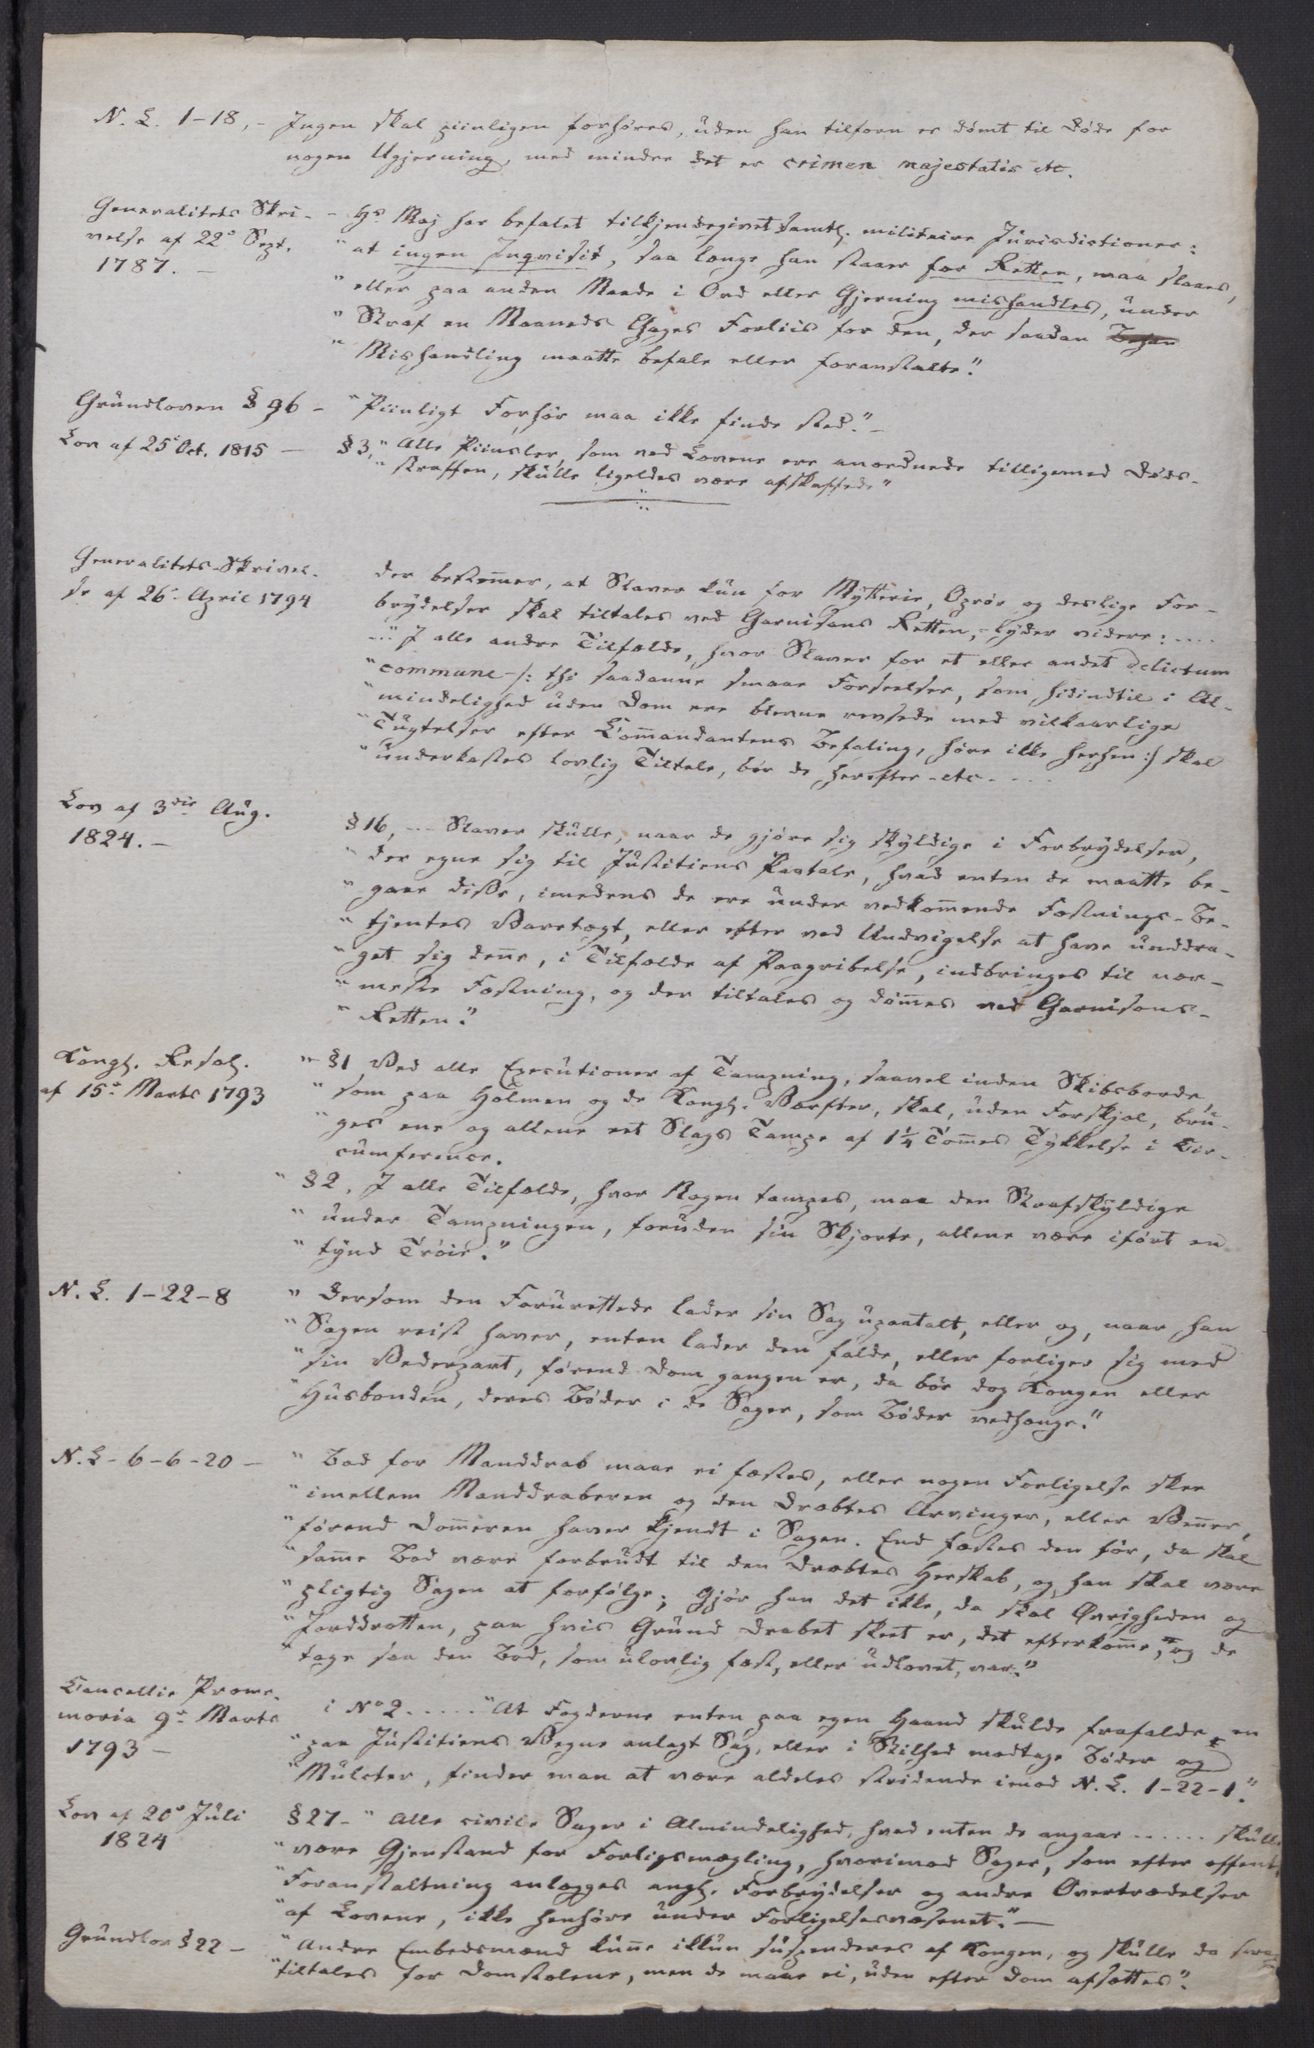 N. L. 1-18, - Ingen skal piinligen forhöres, uden han tilforn er dömt til Döde for
nogen Ugjerning, med mindre det er crimen majestatis etc.
Generalitets Skri- - Hs Maj har befalet tilkjendegivet samtl. militaire Jurisdictioner:
velse af 22de Sept. " at ingen Inqvisit, saa længe han staaer for Retten, maa slaaes,
1787. - " eller paa anden Maade i Ord eller Gjerning mishandles, under
" Straf en Maaneds Gages Forliis for den, der saadan Behan
" Mishandling maatte befale eller foranstalte."
Grundloven § 96 - " Piinligt Forhör maa ikke finde sted." -
Lov af 25de Oct. 1815 - § 3, " Alle Piinsler, som ved Lovene ere anordnede tilligemed Döds-
" straffen, skulle ligeledes være afskaffede"
Generalitets-Skrivel- der bestemmer, at Slaver kun for Mytterie, Oprör og deslige For-
se af 26de April 1794 brydelser skal tiltales ved Garnisons Retten, - lyder videre: ....
..." I alle andre Tilfælde, hvor Slaver for et eller andet delictum
" commune /: thi saadanne smaae Forseelser, som hidindtil i Al-
" mindelighed uden Dom ere blevne revsede med vilkaarlige
" Tugtelser efter Commandantens Befaling, höre ikke herhen :/ skal
" underkastes lovlig Tiltale, bör de herefter - etc - ...
Lov af 3die Aug. § 16, --- Slaver skulle, naar de gjöre sig skyldige i Forbrydelser,
1824. - " der egne sig til Justitiens Paatale, hvad enten de maatte be-
" gaae disse, imedens de ere under vedkommende Fæstnings-Be-
" tjentes Varetægt, eller efter ved Undvigelse at have unddra-
" get sig denne, i Tilfælde af Paagribelse, indbringes til nær-
" meste Fæstning, og der tiltales og dömmes ved Garnisons-
" Retten."
Kongl. Resol. " § 1 Ved alle Executioner af Tampning, saavel inden Skibsborde,
af 15de Marts 1793 " som paa Holmen og de Kongl. Værfter, skal, uden Forskjel, bru-
" ges ene og allene eet Slags Tampe af 1 1/4 Tommes Tykkelse i Cir-
cumference.
" § 2, I alle Tilfælde, hvor Nogen tampes, maa den Straffskyldige
" under Tampningen, foruden sin Skjorte, allene være iført en
" tynd Tröie."
N. L. 1-22-8 " Dersom den Forurettede lader sin Sag upaatalt, eller og, naar han
" Sagen reist haver, enten lader den falde, eller forliger sig med
" sin Vederpart, förend Dom gangen er, da bör dog Kongen eller
" Husbonden, deres Böder i de Sager, som Böder vedhænge."
N. L - 6-6-20 - " Bod for Manddrab maae ei fæstes, eller nogen Forligelse skee
" imellem Manddraberen og den Dræbtes Arvinger, eller Venner,
" förend Dommeren haver kjendt i Sagen. End fæstes den för, da skal
" samme Bod være forbrudt til den Dræbtes Herskab, og han skal være
" pligtig Sagen at forfölge; Gjör han det ikke, da skal Øvrigheden og
" Jorddrotten, paa hvis Grund Drabet skeet er, det efterkomme, og de
" tage saa den Bod, som ulovlig fæst, eller udlovet, var."
Cancellie Prome- i No 2 ..... "At Fogderne enten paa egen Haand skulde frafalde en
moria 9de Marts " paa Justitiens Vegne anlagt Sag, eller i Stilhed modtage Böder og
1793 - " Mulcter, finder man at være aldeles stridende imod N. L. 1-22-1."
Lov af 20de Juli § 27 - " Alle civile Sager i Almindelighed, hvad enten de angaae ...... skulle
1824 " være Gjenstand for Forligsmægling, hvorimod Sager, som efter offentl.
" Foranstaltning anlægges angl. Forbrydelser og andre Overtrædelser
" af Lovene, ikke henhöre under Forligelsesvæsenet." -
Grundlov § 22 - " Andre Embedsmænd kunne ikkun suspenderes af Kongen, og skulle da strax
" tiltales for Domstolene, men de maae ei, uden efter Dom afsættes".